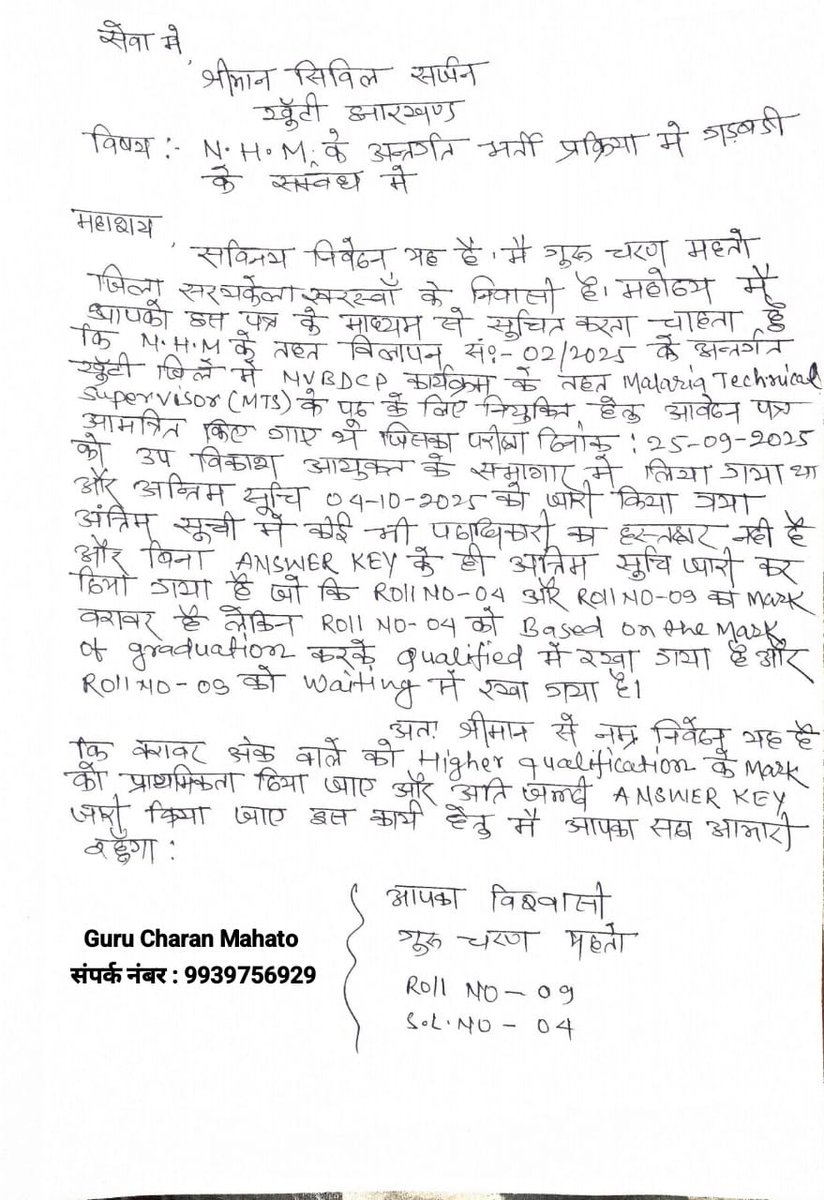 सेवा में,
श्रीमान सिविल सर्जन
खूँटी झारखण्ड
विषय :- N.H.M. के अन्तर्गत भर्ती प्रक्रिया में गड़बडी
के सम्बंध में
महाशय,
सविनय निवेदन यह है। मै गुरू चरण महतो
जिला सरायकेला खरसवाँ के निवासी है। महोदय मैं
आपको इस पत्र के माध्यम से सूचित करता चाहता हूँ
कि N.H.M के तहत विज्ञापन सं:- 02/2025 के अन्तर्गत
खूँटी जिलें में NVBDCP कार्यक्रम के तहत Malaria Technical
Supervisor (MTS) के पद के लिए नियुक्ति हेतु आवेदन पत्र
आमंत्रित किए गाए थे जिसका परीक्षा दिनांक : 25-09-2025
को उप विकाश आयुक्त के सभागार में लिया गया था
और अन्तिम सूचि 04-10-2025 को जारी किया गया
अंतिम सूची में कोई भी पदाधिकारी का हस्तक्षर नही है
और बिना ANSWER KEY के ही अंतिम सूचि जारी कर
दिया गया है जो कि Roll NO-04 और Roll NO-09 का Mark
बराबर है लेकिन Roll NO-04 को Based on the Mark
of graduation करके qualified में रखा गया है और
Roll NO-09 को waiting में रखा गया है।
अतः श्रीमान से नम्र निवेदन यह है
कि बराबर अंक वाले को Higher qualification के Mark
को प्राथमिकता दिया जाए और अति जल्दी ANSWER KEY
जारी किया जाए इस कार्य हेतु मै आपका सदा आभारी
रहूँगा :
आपका विश्वासी
गुरू चरण महतो
Roll NO - 09
S.L. NO - 04
Guru Charan Mahato
संपर्क नंबर : 9939756929